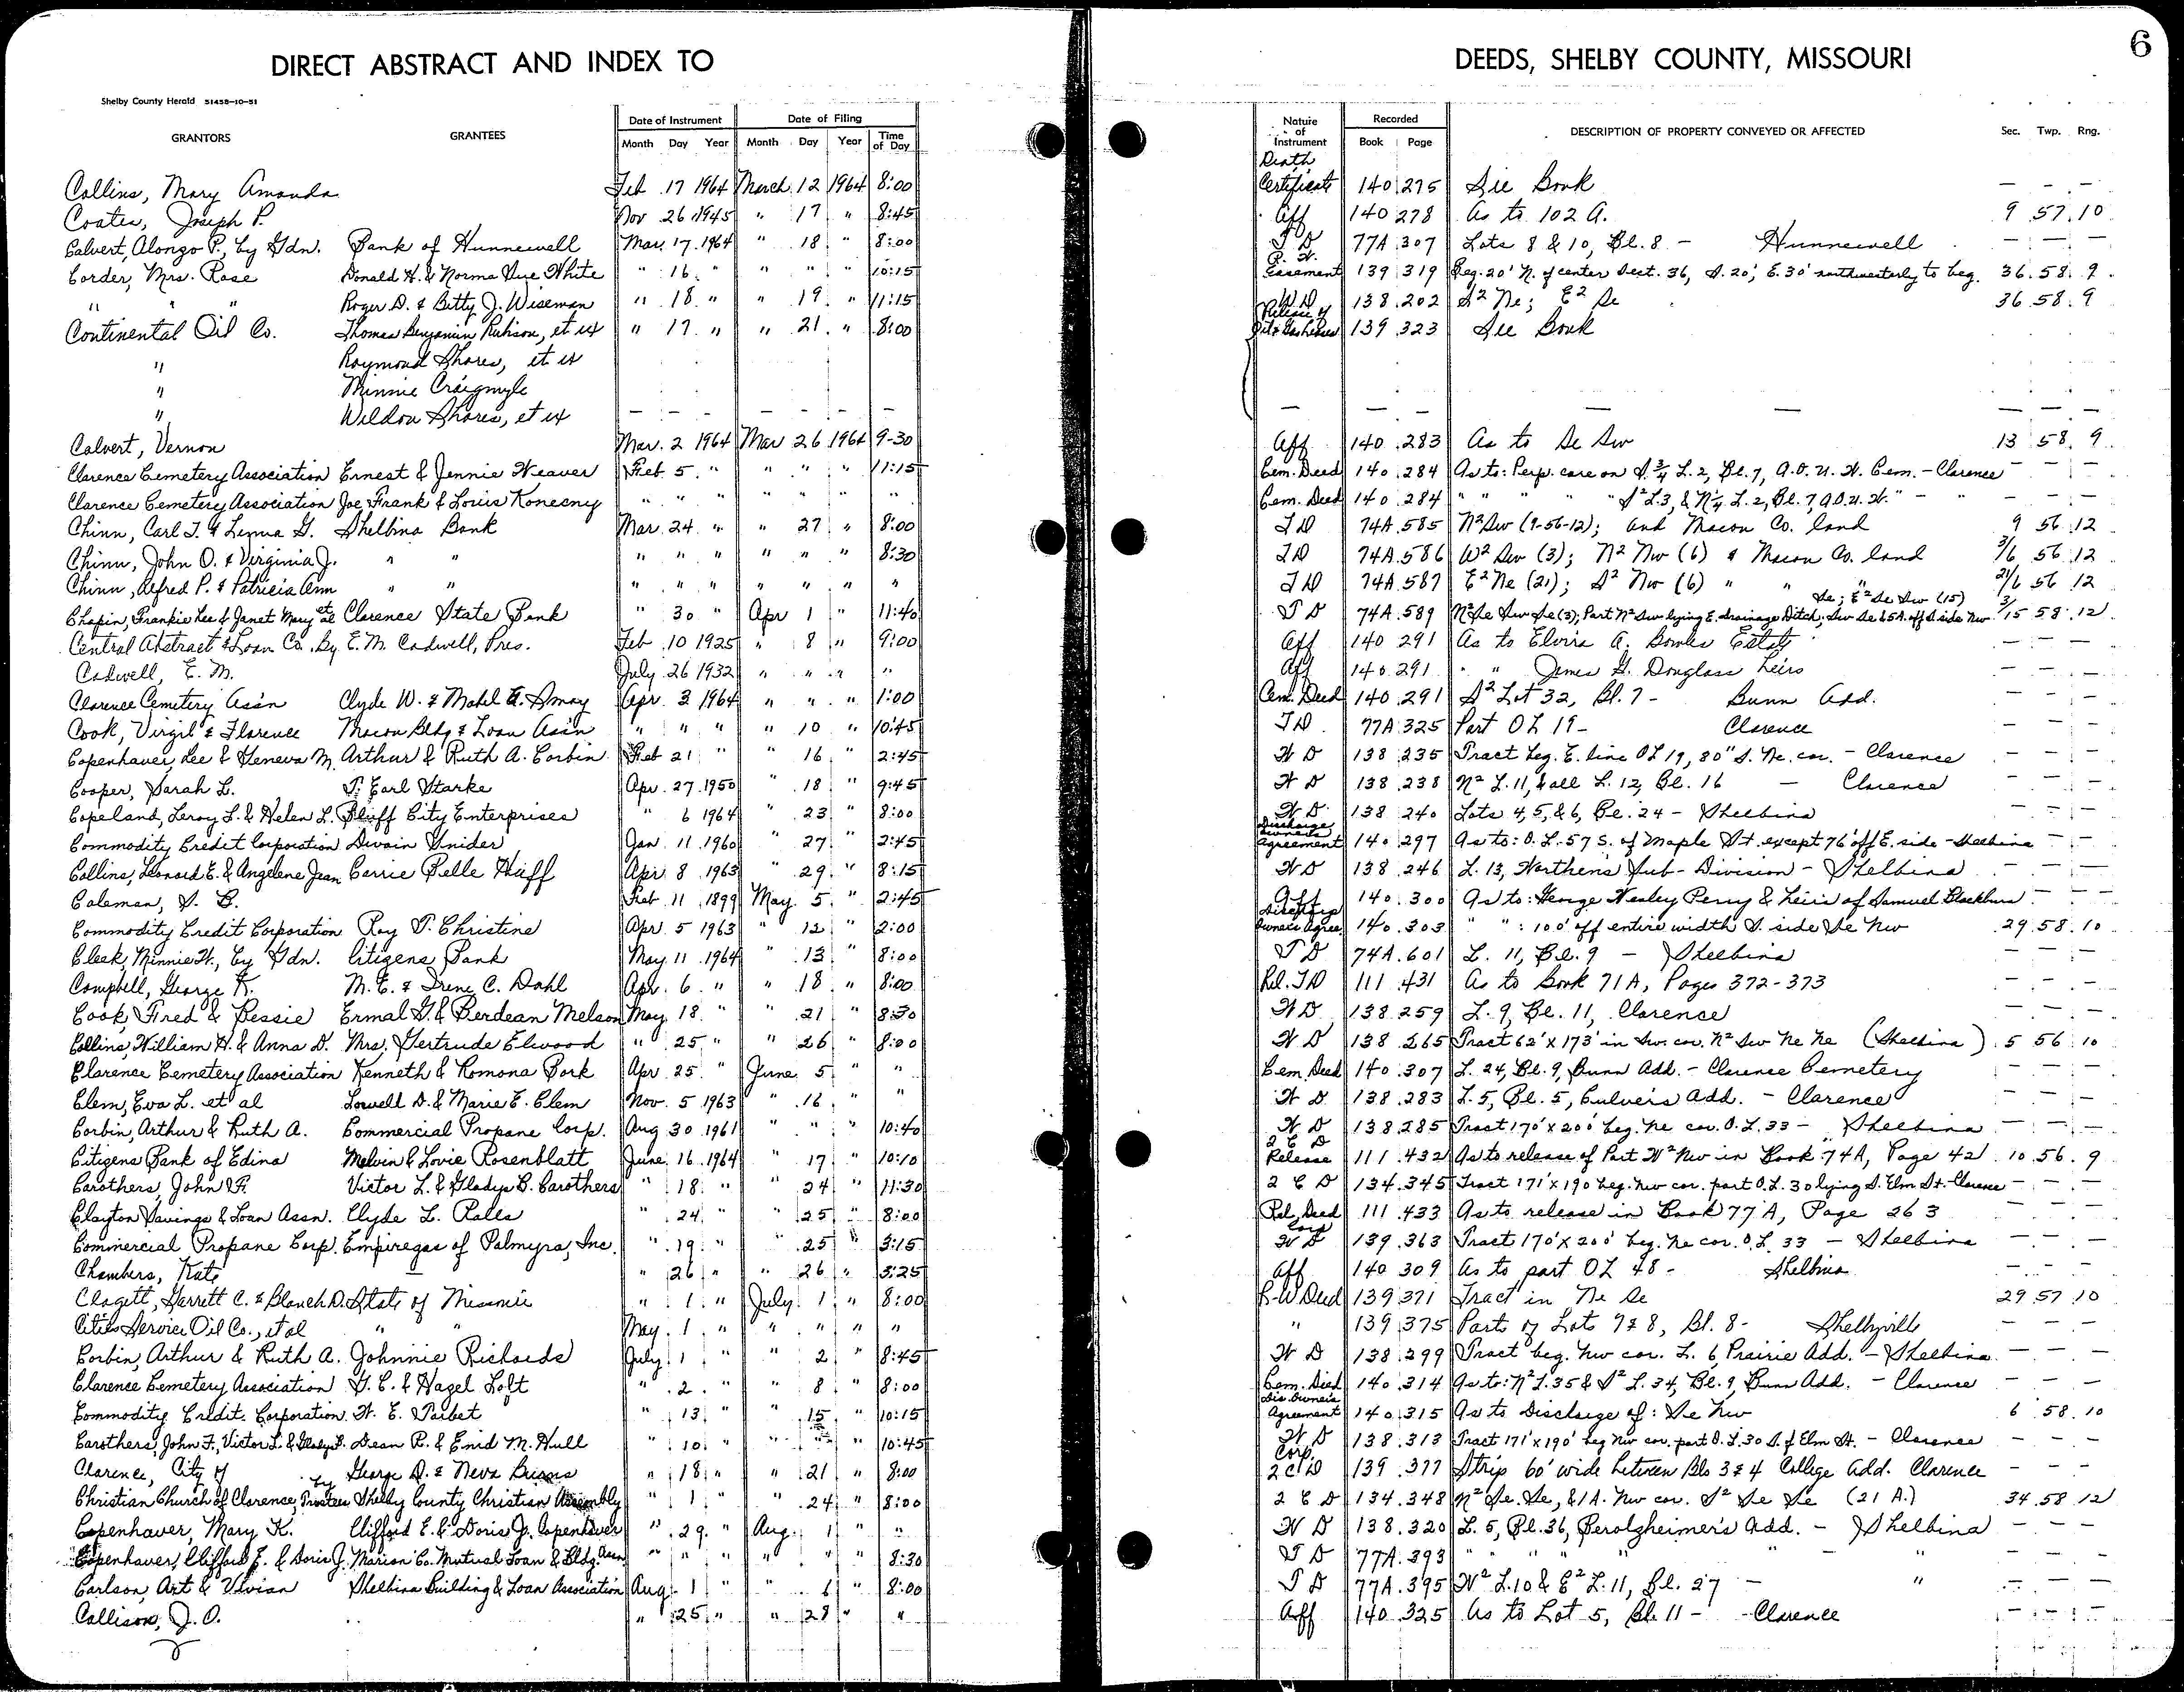 6
DIRECT ABSTRACT AND INDEX TO DEEDS, SHELBY COUNTY, MISSOURI
Shelby County Herald 51458-10-51
GRANTORS GRANTEES Date of Instrument Month Day Year Date of Filing Month Day Year Time of Day Nature of Instrument Recorded Book Page DESCRIPTION OF PROPERTY CONVEYED OR AFFECTED Sec. Twp. Rng.
Collins, Mary Amanda Feb 17 1964 March 12 1964 8:00 Death Certificate 140 275 See Book — — —
Coates, Joseph P. Nov 26 1945 " 17 " 8:45 Aff 140 278 As to 102 A. 9 57 10
Calvert, Alonzo P., by Gdn. Bank of Hunnewell Mar. 17 1964 " 18 " 8:00 T D 77A 307 Lots 8 & 10, Bl. 8 - Hunnewell — — —
Corder, Mrs. Rose Donald H. & Norma Sue White " 16 " " " " 10:15 R. W. Easement 139 319 Beg. 20' N. of center Sect. 36, S. 20', E. 30' northwesterly to beg. 36 58 9
" " " Roger D. & Betty J. Wiseman " 18 " " 19 " 11:15 W D 138 202 S² Ne; E² Se 36 58 9
Continental Oil Co. Thomas Benjamin Rubison, et ux " 17 " " 21 " 8:00 Release of Oil & Gas Leases 139 323 See Book
" Raymond Shores, et ux
" Minnie Craigmyle
" Weldon Shores, et ux — — — — — — — — — — — — — — —
Calvert, Vernon Mar. 2 1964 Mar 26 1964 9-30 Aff 140 283 As to Se Sw 13 58 9
Clarence Cemetery Association Ernest & Jennie Weaver Feb 5 " " " " 11:15 Cem. Deed 140 284 As to: Perp. care on S. ¾ L. 2, Bl. 7, A.O.U.W. Cem. - Clarence — — —
Clarence Cemetery Association Joe, Frank & Louis Konecny " " " " " " " Cem. Deed 140 284 " " " " S² L3, & N¼ L. 2, Bl. 7, A.O.U.W. " - " — — —
Chinn, Carl T. & Lenna G. Shelbina Bank Mar 24 " " 27 " 8:00 T D 74A 585 N² Sw (9-56-12); and Macon Co. land 9 56 12
Chinn, John O. & Virginia J. " " " " " " " " 8:30 T D 74A 586 W² Sw (3); N² Nw (6) & Macon Co. land 3/6 56 12
Chinn, Alfred P. & Patricia Ann " " " " " " " " " T D 74A 587 E² Ne (21); S² Nw (6) " " " 21/6 56 12
Chapin, Frankie Lee & Janet Mary et al Clarence State Bank " 30 " Apr 1 " 11:40 T D 74A 589 N² Se Sw Se (3); Part N² Sw lying E. drainage Ditch; Sw Se & 5A. off S side Nw Se; E² Se Sw (15) 3/15 58 12
Central Abstract & Loan Co. By E. M. Cadwell, Pres. Feb 10 1925 " 8 " 9:00 Aff 140 291 As to Elvira A. Bowles Estate — — —
Cadwell, E. M. July 26 1932 " " " " Aff 140 291 " " James G. Douglass heirs — — —
Clarence Cemetery Ass'n Clyde W. & Mabel A. Amay Apr. 3 1964 " " " 1:00 Cem. Deed 140 291 S² Lot 32, Bl. 7 - Bunn Add. — — —
Cook, Virgil & Florence Macon Bldg & Loan Ass'n " " " " 10 " 10:45 T D 77A 325 Part O L 19 - Clarence — — —
Copenhaver, Lee & Geneva M. Arthur & Ruth A. Corbin Feb 21 " " 16 " 2:45 W D 138 235 Tract beg. E. line O L 19, 80" S. Ne. cor. - Clarence — — —
Cooper, Sarah L. T. Earl Starke Apr. 27 1950 " 18 " 9:45 W D 138 238 N² L. 11, & all L. 12, Bl. 16 — Clarence — — —
Copeland, Leroy L. & Helen L. Bluff City Enterprises " 6 1964 " 23 " 8:00 W D 138 240 Lots 4, 5, & 6, Bl. 24 - Shelbina — — —
Commodity Credit Corporation Dwain Snider Jan. 11 1960 " 27 " 2:45 Discharge Owners Agreement 140 297 As to: O. L. 57 S. of Maple St. except 76' off E. side - Shelbina — — —
Collins, Leonard E. & Angelene Jean Carrie Belle Huff Apr. 8 1963 " 29 " 8:15 W D 138 246 L. 13, Northen's Sub-Division - Shelbina — — —
Coleman, S. B. Feb 11 1899 May 5 " 2:45 Aff 140 300 As to: George Wesley Perry & heirs of Samuel Blackburn — — —
Commodity Credit Corporation Roy T. Christine Apr. 5 1963 " 12 " 2:00 Discharge Owners Agree. 140 303 " " : 100' off entire width S. side Se Nw 29 58 10
Cleek, Minnie W., by Gdn. Citizens Bank May 11 1964 " 13 " 8:00 T D 74A 601 L. 11, Bl. 9 - Shelbina — — —
Campbell, George K. M. E. & Irene C. Dahl Apr. 6 " " 18 " 8:00 Rel. T D 111 431 As to Book 71A, Pages 372-373 — — —
Cook, Fred & Bessie Ermal G. & Berdean Melson May 18 " " 21 " 8:30 W D 138 259 L. 9, Bl. 11, Clarence — — —
Collins, William H. & Anna D. Mrs. Gertrude Elwood " 25 " " 26 " 8:00 W D 138 265 Tract 62' x 173' in Sw. cor. N² Sw Ne Ne (Shelbina) 5 56 10
Clarence Cemetery Association Kenneth & Romona Bork Apr. 25 " June 5 " " Cem. Deed 140 307 L. 24, Bl. 9, Bunn Add. - Clarence Cemetery — — —
Clem, Eva L. et al Lowell D. & Marie E. Clem Nov. 5 1963 " 16 " " W D 138 283 L. 5, Bl. 5, Culver's Add. - Clarence — — —
Corbin, Arthur & Ruth A. Commercial Propane Corp. Aug 30 1961 " " " 10:40 W D 138 285 Tract 170' x 200' beg. Ne cor. O. L. 33 - Shelbina — — —
Citizens Bank of Edina Melvin & Lovie Rosenblatt June 16 1964 " 17 " 10:10 2 C D Release 111 432 As to release of Part W² Nw in Book 74A, Page 42 10 56 9
Carothers, John F. Victor L. & Gladys B. Carothers " 18 " " 24 " 11:30 2 C D 134 345 Tract 171' x 190' beg. Nw cor. part O. L. 30 lying S. Elm St. - Clarence — — —
Clayton Savings & Loan Assn. Clyde L. Ralls " 24 " " 25 " 8:00 Rel. Deed 111 433 As to release in Book 77A, Page 263 — — —
Commercial Propane Corp. Empiregas of Palmyra, Inc. " 19 " " 25 " 3:15 Corp W D 139 363 Tract 170' x 200' beg. Ne cor. O. L. 33 - Shelbina — — —
Chambers, Kate — " 26 " " 26 " 3:25 Aff 140 309 As to part O L 48 - Shelbina — — —
Clagett, Garrett C. & Blanch D. State of Missouri " 1 " July 1 " 8:00 R-W Deed 139 371 Tract in Ne Se 29 57 10
Cities Service Oil Co., et al " " May 1 " " " " " " 139 375 Parts of Lots 7 & 8, Bl. 8 - Shelbyville — — —
Corbin, Arthur & Ruth A. Johnnie Richards July 1 " " 2 " 8:45 W D 138 299 Tract beg. Nw cor. L. 6, Prairie Add. - Shelbina — — —
Clarence Cemetery Association G. C. & Hazel Lolt " 2 " " 8 " 8:00 Cem. Deed 140 314 As to: N² L. 35 & S² L. 34, Bl. 9, Bunn Add. - Clarence — — —
Commodity Credit Corporation W. E. Tarbet " 13 " " 15 " 10:15 Dis. Owner's Agreement 140 315 As to Discharge of: Se Nw 6 58 10
Carothers, John F., Victor L. & Gladys B. Dean R. & Enid M. Hull " 10 " " " " 10:45 W D 138 313 Tract 171' x 190' beg Nw cor. part O. L. 30 S. of Elm St. - Clarence — — —
Clarence, City of George D. & Neva Burns " 18 " " 21 " 8:00 Corp. 2 C D 139 377 Strip 60' wide between Bls 3 & 4 College Add. Clarence — — —
Christian Church of Clarence, by Trustees Shelby County Christian Assembly " 1 " " 24 " 8:00 2 C D 134 348 N² Se. Se, & 1 A. Nw cor. S² Se Se (21 A.) 34 58 12
Copenhaver, Mary K. Clifford E. & Doris J. Copenhaver " 29 " Aug. 1 " " W D 138 320 L. 5, Bl. 36, Berolzheimer's Add. - Shelbina — — —
Copenhaver, Clifford E. & Doris J. Marion Co. Mutual Loan & Bldg. Assn " " " " " " 8:30 T D 77A 393 " " " " " " — — —
Carlson, Art & Vivian Shelbina Building & Loan Association Aug. 1 " " 6 " 8:00 T D 77A 395 W² L. 10 & E² L. 11, Bl. 27 - " — — —
Callison, J. O. " 25 " " 28 " " Aff 140 325 As to Lot 5, Bl. 11 - Clarence — — —